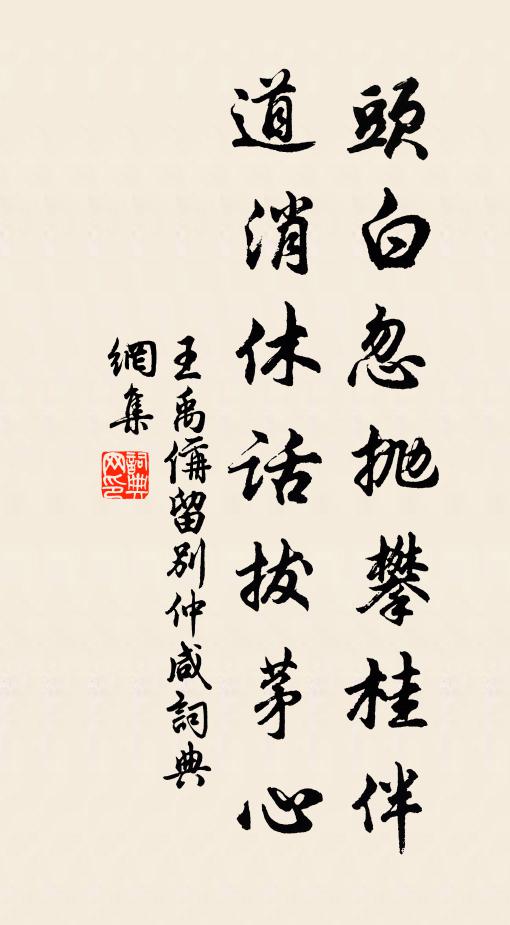 頭白忽拋攀桂伴
道消休話拔茅心
王禹偁留別仲咸詞典
網集
詞典网印